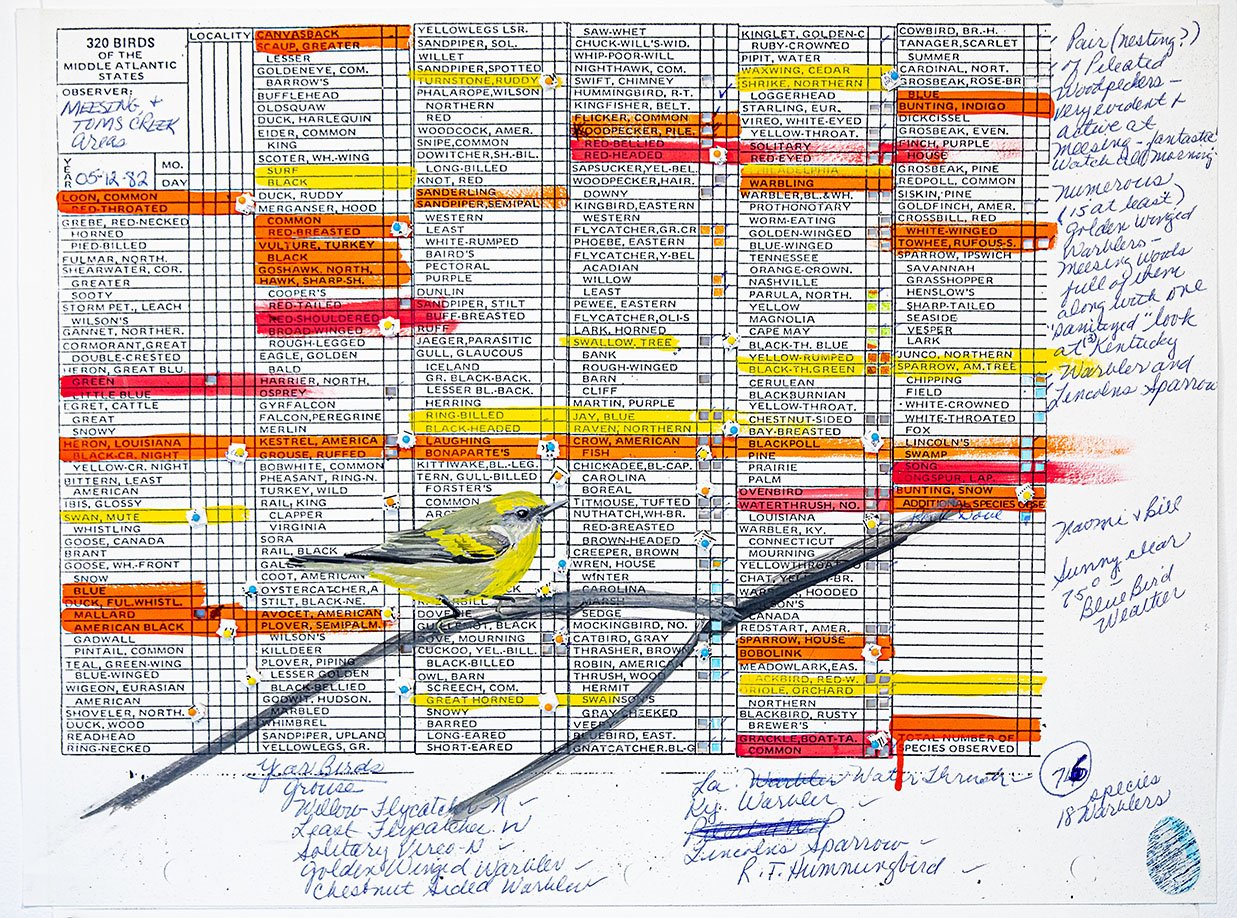 320 BIRDS
OF THE
MIDDLE ATLANTIC
STATES
OBSERVER:
MEESING +
TOMS CREEK
AREAS
YEAR 05-12-82 MO.
DAY
LOCALITY
LOON, COMMON
RED-THROATED
GREBE, RED-NECKED
HORNED
PIED-BILLED
FULMAR, NORTH.
SHEARWATER, COR.
GREATER
SOOTY
STORM PET., LEACH
WILSON'S
GANNET, NORTHER.
CORMORANT,GREAT
DOUBLE-CRESTED
HERON, GREAT BLU.
GREEN
LITTLE BLUE
EGRET, CATTLE
GREAT
SNOWY
HERON, LOUISIANA
BLACK-CR. NIGHT
YELLOW-CR. NIGHT
BITTERN, LEAST
AMERICAN
IBIS, GLOSSY
SWAN, MUTE
WHISTLING
GOOSE, CANADA
BRANT
GOOSE, WH.-FRONT
SNOW
BLUE
DUCK, FUL.WHISTL.
MALLARD
AMERICAN BLACK
GADWALL
PINTAIL, COMMON
TEAL, GREEN-WING
BLUE-WINGED
WIGEON, EURASIAN
AMERICAN
SHOVELER, NORTH.
DUCK, WOOD
READHEAD
RING-NECKED
CANVASBACK
SCAUP, GREATER
LESSER
GOLDENEYE, COM.
BARROW'S
BUFFLEHEAD
OLDSQUAW
DUCK, HARLEQUIN
EIDER, COMMON
KING
SCOTER, WH.-WING
SURF
BLACK
DUCK, RUDDY
MERGANSER, HOOD
COMMON
RED-BREASTED
VULTURE, TURKEY
BLACK
GOSHAWK, NORTH.
HAWK, SHARP-SH.
COOPER'S
RED-TAILED
RED-SHOULDERED
BROAD-WINGED
ROUGH-LEGGED
EAGLE, GOLDEN
BALD
HARRIER, NORTH.
OSPREY
GYRFALCON
FALCON,PEREGRINE
MERLIN
KESTREL, AMERICA
GROUSE, RUFFED
BOBWHITE, COMMON
PHEASANT, RING-N.
TURKEY, WILD
RAIL, KING
CLAPPER
VIRGINIA
SORA
RAIL, BLACK
COOT, AMERICAN
OYSTERCATCHER,A
STILT, BLACK-NE.
AVOCET, AMERICAN
PLOVER, SEMIPALM.
WILSON'S
KILLDEER
PLOVER, PIPING
LESSER GOLDEN
BLACK-BELLIED
GODWIT, HUDSON.
MARBLED
WHIMBREL
SANDPIPER, UPLAND
YELLOWLEGS, GR.
YELLOWLEGS LSR.
SANDPIPER, SOL.
WILLET
SANDPIPER,SPOTTED
TURNSTONE,RUDDY
PHALAROPE,WILSON
NORTHERN
RED
WOODCOCK, AMER.
SNIPE,COMMON
DOWITCHER,SH.-BIL.
LONG-BILLED
KNOT, RED
SANDERLING
SANDPIPER,SEMIPAL
WESTERN
LEAST
WHITE-RUMPED
BAIRD'S
PECTORAL
PURPLE
DUNLIN
SANDPIPER, STILT
BUFF-BREASTED
RUFF
JAEGER,PARASITIC
GULL, GLAUCOUS
ICELAND
GR. BLACK-BACK.
LESSER BL.-BACK.
HERRING
RING-BILLED
BLACK-HEADED
LAUGHING
BONAPARTE'S
KITTIWAKE,BL-LEG.
TERN, GULL-BILLED
FORSTER'S
COMMON
DOVE, MOURNING
CUCKOO, YEL.-BILL.
BLACK-BILLED
OWL, BARN
SCREECH, COM.
GREAT HORNED
SNOWY
BARRED
LONG-EARED
SHORT-EARED
SAW-WHET
CHUCK-WILL'S-WID.
WHIP-POOR-WILL
NIGHTHAWK, COM.
SWIFT, CHIMNEY
HUMMINGBIRD, R-T.
KINGFISHER, BELT.
FLICKER, COMMON
WOODPECKER, PILE.
RED-BELLIED
RED-HEADED
SAPSUCKER,YEL-BEL.
WOODPECKER,HAIR.
DOWNY
KINGBIRD,EASTERN
WESTERN
FLYCATCHER,GR.CR
PHOEBE, EASTERN
FLYCATCHER,Y-BEL
ACADIAN
WILLOW
LEAST
PEWEE, EASTERN
FLYCATCHER,OLI-S
LARK, HORNED
SWALLOW, TREE
BANK
ROUGH-WINGED
BARN
CLIFF
MARTIN, PURPLE
JAY, BLUE
RAVEN, NORTHERN
CROW, AMERICAN
FISH
CHICKADEE,BL-CAP.
CAROLINA
BOREAL
TITMOUSE, TUFTED
NUTHATCH,WH-BR.
RED-BREASTED
BROWN-HEADED
CREEPER, BROWN
WREN, HOUSE
WINTER
CAROLINA
MARSH
SEDGE
MOCKINGBIRD, NO.
CATBIRD, GRAY
THRASHER, BROWN
ROBIN, AMERICAN
THRUSH, WOOD
HERMIT
SWAINSON'S
GRAY-CHEEKED
VEERY
BLUEBIRD, EAST.
GNATCATCHER.BL-G
KINGLET, GOLDEN-C
RUBY-CROWNED
PIPIT, WATER
WAXWING, CEDAR
SHRIKE, NORTHERN
LOGGERHEAD
STARLING, EUR.
VIREO, WHITE-EYED
YELLOW-THROAT.
SOLITARY
RED-EYED
PHILADELPHIA
WARBLING
WARBLER,BL.&WH.
PROTHONOTARY
WORM-EATING
GOLDEN-WINGED
BLUE-WINGED
TENNESSEE
ORANGE-CROWN.
NASHVILLE
PARULA, NORTH.
YELLOW
MAGNOLIA
CAPE MAY
BLACK-TH. BLUE
YELLOW-RUMPED
BLACK-TH.GREEN
CERULEAN
BLACKBURNIAN
YELLOW-THROAT.
CHESTNUT-SIDED
BAY-BREASTED
BLACKPOLL
PINE
PRAIRIE
PALM
OVENBIRD
WATERTHRUSH, NO.
LOUISIANA
WARBLER, KY.
CONNECTICUT
MOURNING
YELLOWTHROAT
CHAT, YELLOW-BR.
CANADA
REDSTART, AMER.
SPARROW, HOUSE
BOBOLINK
MEADOWLARK,EAS.
BLACKBIRD, RED-W.
ORIOLE, ORCHARD
NORTHERN
BLACKBIRD, RUSTY
BREWER'S
GRACKLE,BOAT-TA.
COMMON
COWBIRD, BR.-H.
TANAGER,SCARLET
SUMMER
CARDINAL, NORT.
GROSBEAK,ROSE-BR
BLUE
BUNTING, INDIGO
DICKCISSEL
GROSBEAK, EVEN.
FINCH, PURPLE
HOUSE
GROSBEAK, PINE
REDPOLL, COMMON
SISKIN, PINE
GOLDFINCH, AMER.
CROSSBILL, RED
WHITE-WINGED
TOWHEE, RUFOUS-S.
SPARROW, IPSWICH
SAVANNAH
GRASSHOPPER
HENSLOW'S
SHARP-TAILED
SEASIDE
VESPER
LARK
JUNCO, NORTHERN
SPARROW, AM.TREE
CHIPPING
FIELD
WHITE-CROWNED
WHITE-THROATED
FOX
LINCOLN'S
SWAMP
SONG
LONGSPUR, LAP.
BUNTING, SNOW
ADDITIONAL SPECIES OBSE
Dove
TOTAL NUMBER OF
SPECIES OBSERVED
Pair (nesting?)
of Pileated
Woodpeckers –
very evident +
active at
Meesing – fantastic
Watch all morning.
Numerous
(15 at least)
Golden Winged
Warblers –
Meesing woods
full of them
along with one
look
at Kentucky
Warbler and
Lincolns Sparrow
Naomi + Bill
Sunny clear
75°
Blue Bird
Weather
76 species
18 Warblers
Year Birds
Grouse
Willow Flycatcher – N –
Least Flycatcher – N
Solitary Vireo – N –
Golden Winged Warbler –
Chestnut Sided Warbler
La. Warbler Water Thrush –
Ky. Warbler –
Lincolns Sparrow –
R. T. Hummingbird –